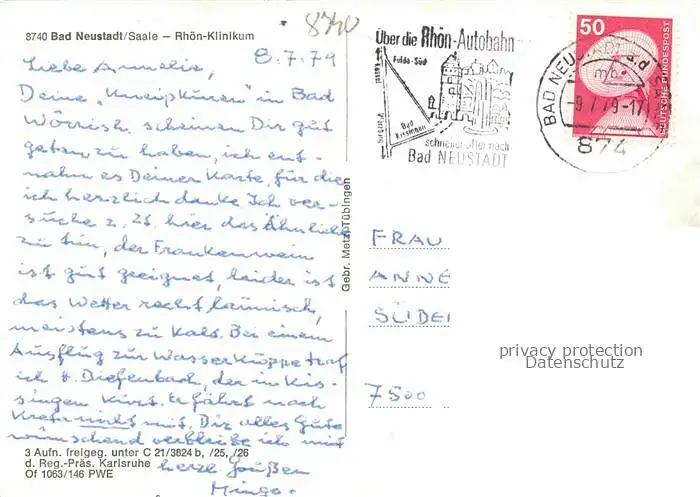 8740 Bad Neustadt/Saale — Rhön-Klinikum
8740
8.7.79
Liebe Annelie,
Deine „Kneippkuren" in Bad
Wörrish. scheinen Dir gut
getan zu haben, ich ent-
nahm es Deiner Karte, für die
ich herzlich danke. Ich ver-
suche z. Zt. hier das Ähnliche
zu tun, der Frankenwein
ist gut geeignet, leider ist
das Wetter recht launisch,
meistens zu kalt. Bei einem
Ausflug zur Wasserkuppe traf
ich H. Diefenbach, der in Kis-
singen kurt. Er fährt nach
nicht mit. Dir alles Gute
wünschend verbleibe ich mit
herzl. Grüßen
3 Aufn. freigeg. unter C 21/3824 b, /25, /26
d. Reg.-Präs. Karlsruhe
Of 1063/146 PWE
Gebr. Metz, Tübingen
Über die Rhön-Autobahn
Fulda-Süd
Würzburg
Bad
Kissingen
schneller öfter nach
Bad NEUSTADT
BAD NEUSTADT a.d. SAALE
mb
-9.7.79-17
874
50
DEUTSCHE BUNDESPOST
FRAU
ANNE
SÜBEI
7500
privacy protection
Datenschutz